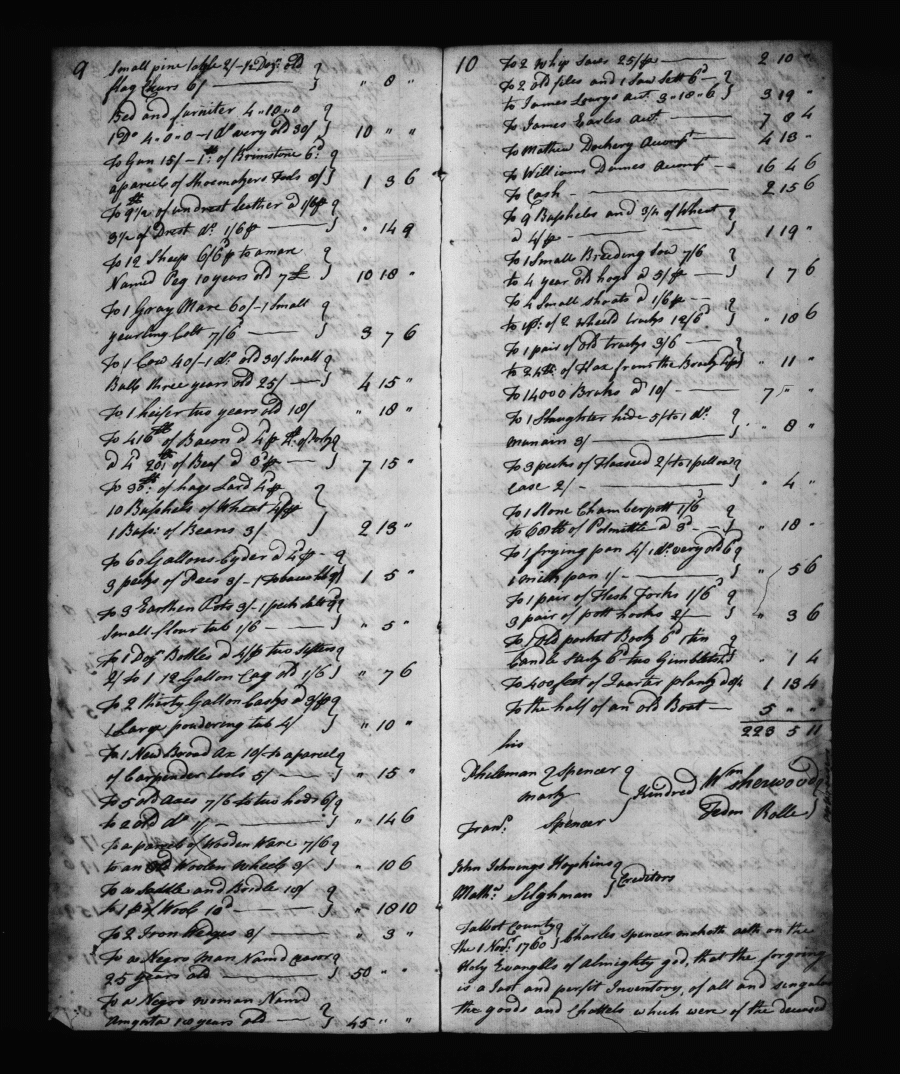 9
Small pine table 2/- ½ Dozn. old
flag Chars 6/ " 8 "
Bed and furniter 4..10..0
1 Do 4..0..0 - 1 do very old 30/ 10 " "
To Gun 15/ - 1 lb. of Brimstone 6d.
a parcel of Shoemakers Tools 8/ 1 3 6
To 9½ lb of undrest leather @ 1/6 p
3½ of Drest do. 1/6 p " 14 9
To 12 Sheep 6/6 p to a mare
Named Peg 10 years old 7 £ 10 18 "
To 1 Gray Mare 60/ - 1 Small
yeurling Colt 7/6 3 7 6
To 1 Cow 40/ - 1 do. old 30/ Small
Bull three years old 25/ 4 15 "
To 1 heifer two years old 18/ " 18 "
To 416 lb of Bacon @ 4 p lb. of
@ 4d 20 lb of Beef @ 3d p 7 15 "
To 38 lb. of hogs Lard 4d p
10 Bushels of Wheat 4/ p
1 Bus: of Beans 3/ 2 13 "
To 60 Gallons Cyder @ 4d p
3 pecks of Pees 3/ - 1 1 5 "
To 3 Earthen Pots 3/ - 1 peck
Small flour tub 1/6 " 5 "
To 1 Doz Bottles @ 4/ p two Sifters
2/ to 1 12 Gallon Cag old 1/6 " 7 6
To 2 thirty Gallon Casks @ 3/ p
1 Large powdering tub 4/ " 10 "
To 1 New Broad Ax 10/ to a parcel
of Carpender tools 5/ " 15 "
To 5 old Axes 7/6 to two hods 6/
to a old do. 1/ " 14 6
To a parcel of Wooden Ware 7/6
to an Old Woolen Wheele 3/ " 10 6
To a Saddle and Bridle 18/
to 1 p of Wool 10d " 18 10
To 2 Iron Wedges 3/ " 3 "
To a Negro man Namd
25 years old 50 " "
To a Negro woman Namd
years old 45 " "
10
To 2 Whip Saws 25/ p 2 10 "
To 2 old files and 1 Saw Sett 6d
to James Act. 3..18..6 3 19 "
To James Earles Act. 7 8 4
To Mathew Dockery Accompt 4 13 "
To Williams Dames Accompt 16 4 6
To Cash 2 15 6
To 9 Bushels and 3/4 of Wheat
@ 4/ p 1 19 "
To 1 Small Breeding Sow 7/6
to 4 year old hogs @ 5/ p 1 7 6
To 4 Small shoats @ 1/6 p
to 1 pr. of 2 Wheeld trucks 12/6 " 18 6
To 1 pair of Old trucks 3/6
to 24 lb. of Flax from the 7/6 " 11 "
To 14000 Bricks @ 10/ 7 " "
To 1 Slaughter hide 5/ to 1 do.
murrain 3/ " 8 "
To 3 pecks of Flaxseed 2/ to 1 pillow
Case 2/ " 4 "
To 1 Stone Chamberpott 1/6
to 68 lb of @ 3d " 18 "
To 1 frying pan 4/ 1 do. very old 6d
1 milk pan 1/ " 5 6
To 1 pair of Flesh Forks 1/6
3 pair of pott hooks 2/ " 3 6
To 1 Old pocket Book 6d 1 tin
Candle Stick 6d two Gimbletts " 1 4
To 400 feet of Plank 1 13 4
To the half of an old Boat 5 " "
223 5 11
his
Spencer
mark
Fran. Spencer
Kindred
Wm Sherwood
Fedm Rolle
John Jennings Hopkins
Matthw. Selghman
Creditors
Talbot County
the 1 Novr. 1760
Charles Spencer maketh oath on the
Holy Evangells of Almighty god, that the forgoing
is a Just and perfit Inventory, of all and singular
the goods and Chattels which were of the deceased